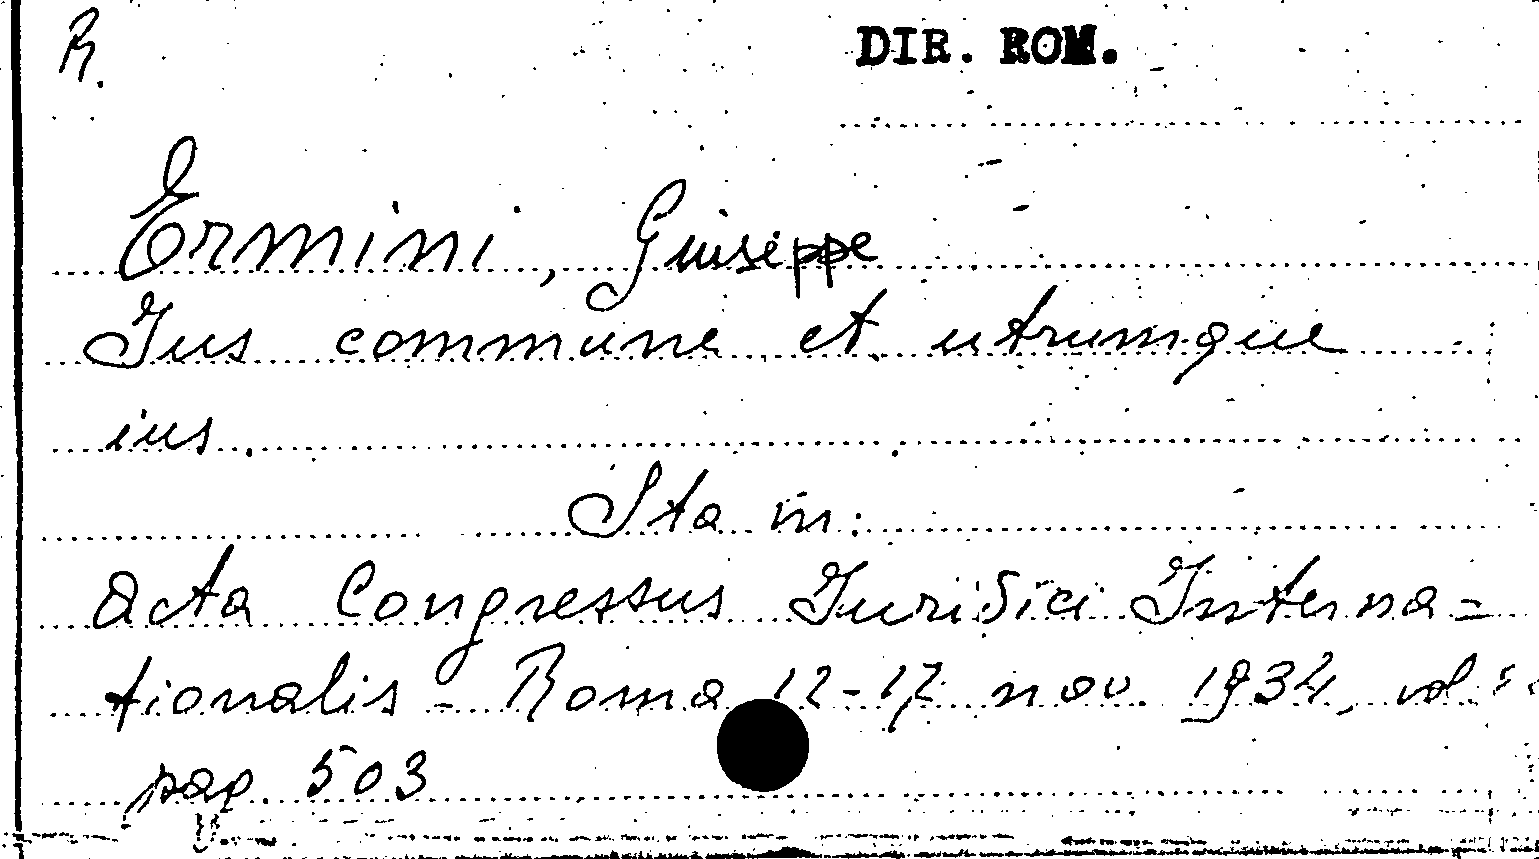 R.
DIR. ROM.
Ermini, Giuseppe
Ius commune et utrumque
ius.
Sta in:
Acta Congressus Iuridici Interna=
tionalis - Roma 12-17 nov. 1934, vol.
pag. 503